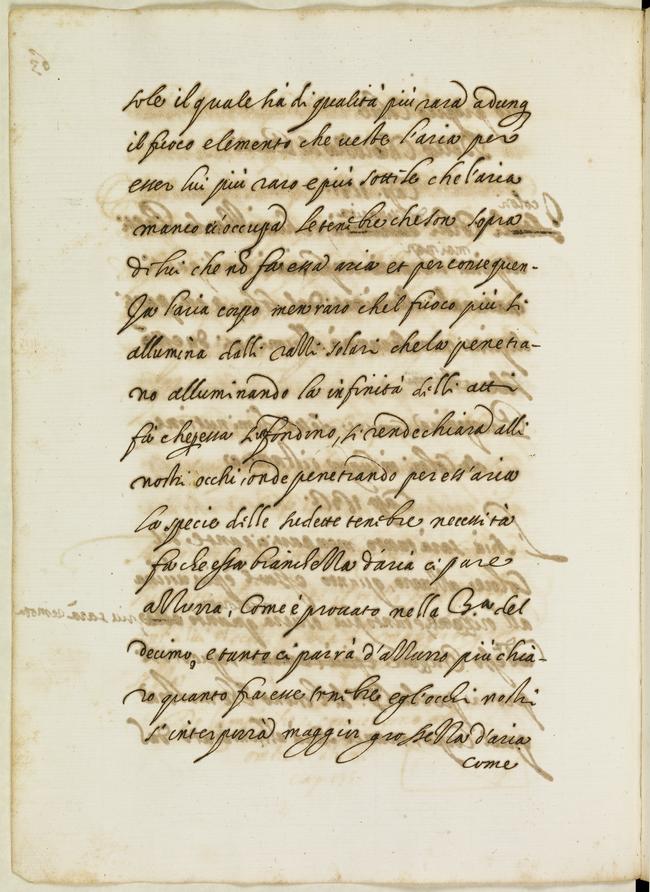 sole il quale hà di qualità più rara adunq
il fuoco elemento che veste l'aria per
esser lui più raro e più sottile che l'aria
manco ci occupa le tenebre che son sopra
di lui che nō fa essa aria et per consequen-
za l'aria corpo men raro che'l fuoco più si
allumina dalli razzi solari che la penetra-
no alluminando la infinità delli atti
fà che essa s'infondino, si rende chiara alli
nostri occhi, onde penetrando per ess'aria
la specie delle sudette tenebre necessità
fà che essa bianchezza d'aria ci pare
azzurra, Come è provato nella 3.a del
decimo, e tanto ci parrà d'azzurro più chia-
ro quanto fra esse tenebre e gl'occhi nostri
s'interporrà maggior grossezza d'aria
Come